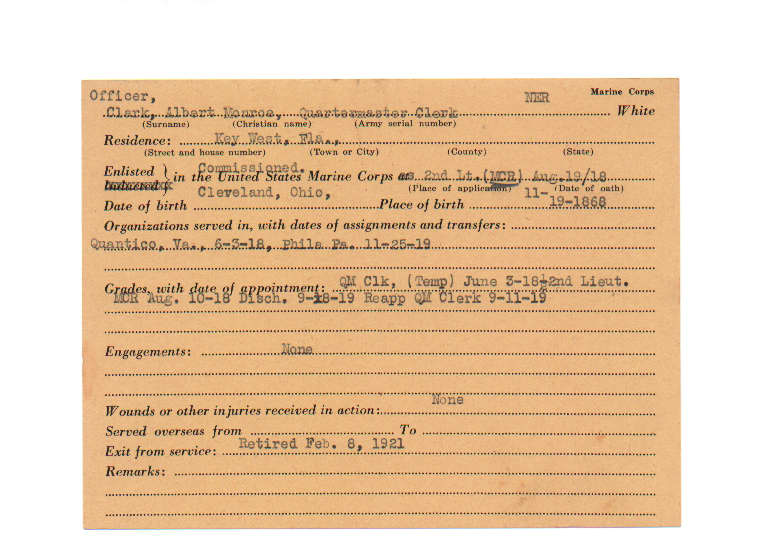 Officer, NER Marine Corps
Clark, Albert Monroe, Quartermaster Clerk White
(Surname) (Christian name) (Army serial number)
Residence: Key West, Fla.,
(Street and house number) (Town or City) (County) (State)
Enlisted Commissioned.
in the United States Marine Corps as 2nd Lt.(MCR) Aug.19/18
Inducted (Place of application) (Date of oath)
Cleveland, Ohio, 11-
Date of birth Place of birth 19-1868
Organizations served in, with dates of assignments and transfers:
Quantico, Va., 6-3-18, Phila Pa. 11-25-19
Grades, with date of appointment: QM Clk, (Temp) June 3-18 2nd Lieut.
MCR Aug. 10-18 Disch. 9-18-19 Reapp QM Clerk 9-11-19
Engagements: None
None
Wounds or other injuries received in action:
Served overseas from To
Exit from service: Retired Feb. 8, 1921
Remarks: